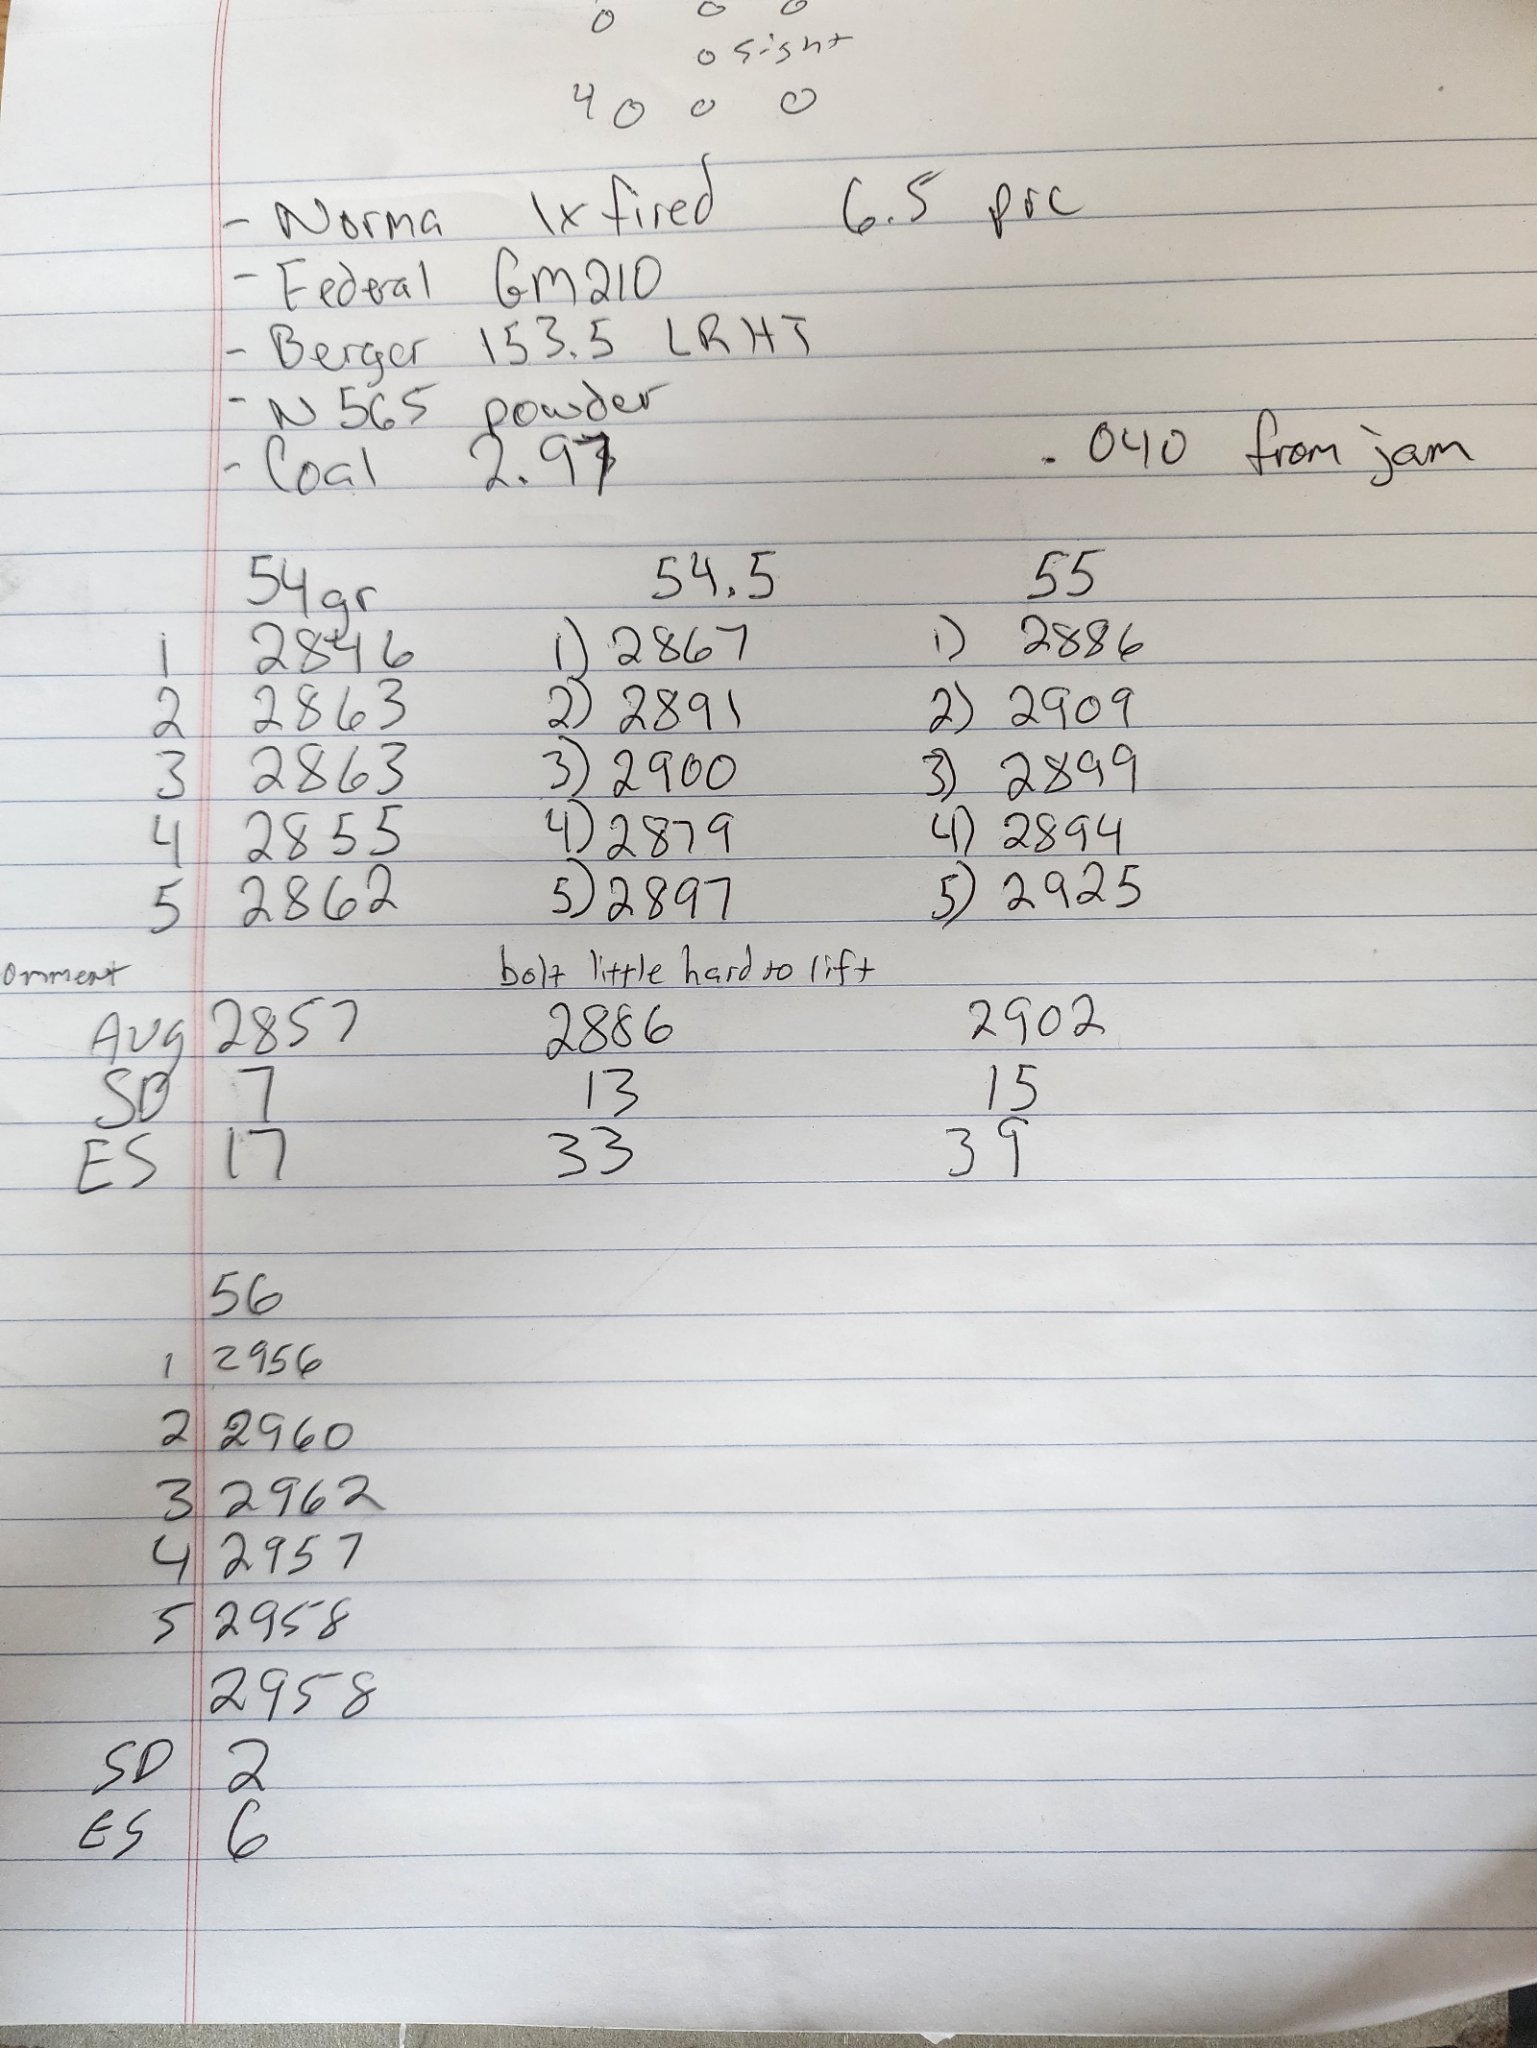 o o o
o sight
4 o o o
- Norma 1x fired 6.5 prc
- Federal GM210
- Berger 153.5 LRHT
- N565 powder
- Coal 2.97 .040 from jam
54gr 54.5 55
1 2846 1) 2867 1) 2886
2 2863 2) 2891 2) 2909
3 2863 3) 2900 3) 2899
4 2855 4) 2879 4) 2894
5 2862 5) 2897 5) 2925
omment bolt little hard to lift
AVg 2857 2886 2902
SD 7 13 15
ES 17 33 39
56
1 2956
2 2960
3 2962
4 2957
5 2958
2958
SD 2
ES 6